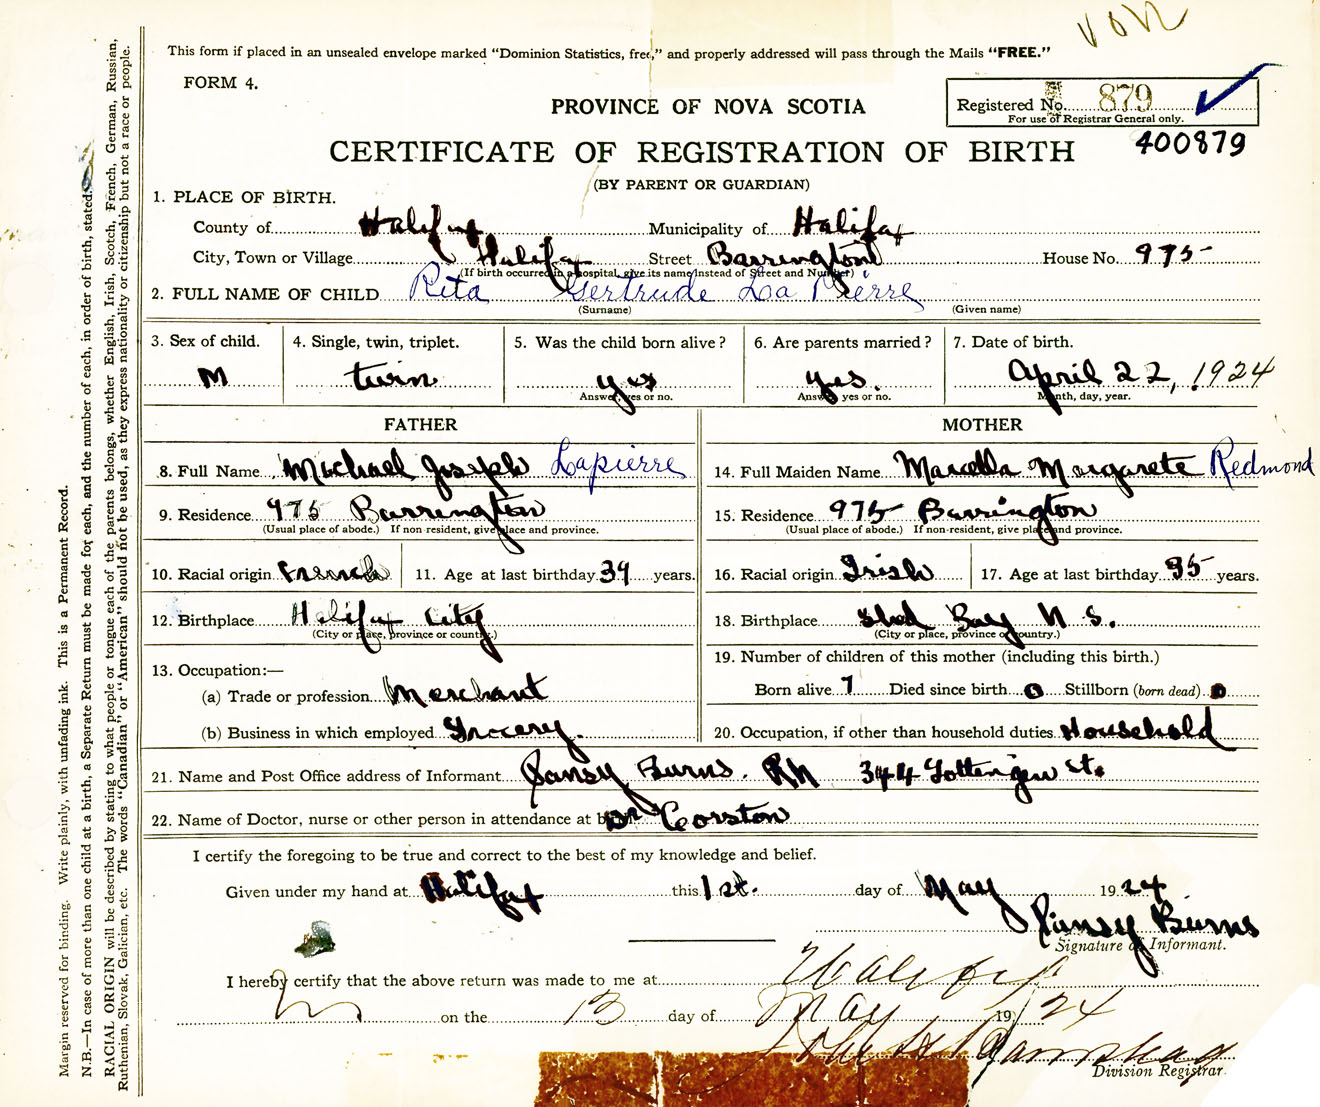 von
This form if placed in an unsealed envelope marked "Dominion Statistics, free," and properly addressed will pass through the Mails "FREE."
FORM 4.
PROVINCE OF NOVA SCOTIA
Registered No. 879
For use of Registrar General only.
400879
CERTIFICATE OF REGISTRATION OF BIRTH
(BY PARENT OR GUARDIAN)
1. PLACE OF BIRTH.
County of Halifax Municipality of Halifax
City, Town or Village Halifax Street Barrington House No. 975
(If birth occurred in a hospital, give its name instead of Street and Number)
2. FULL NAME OF CHILD Rita Gertrude La Pierre
(Surname) (Given name)
3. Sex of child. 4. Single, twin, triplet. 5. Was the child born alive? 6. Are parents married? 7. Date of birth.
M twin yes yes. April 22, 1924
Answer, yes or no. Answer yes or no. Month, day, year.
FATHER MOTHER
8. Full Name Michael Joseph Lapierre 14. Full Maiden Name Marcella Margarete Redmond
9. Residence 975 Barrington 15. Residence 975 Barrington
(Usual place of abode.) If non resident, give place and province. (Usual place of abode.) If non-resident, give place and province.
10. Racial origin French 11. Age at last birthday 39 years. 16. Racial origin Irish 17. Age at last birthday 35 years.
12. Birthplace Halifax City 18. Birthplace Shad Bay N.S.
(City or place, province or country.) (City or place, province or country.)
13. Occupation:— 19. Number of children of this mother (including this birth.)
(a) Trade or profession Merchant Born alive 7 Died since birth 0 Stillborn (born dead) 0
(b) Business in which employed Grocery. 20. Occupation, if other than household duties Household
21. Name and Post Office address of Informant Pansy Burns. RN 344 Gottengen St.
22. Name of Doctor, nurse or other person in attendance at birth Dr Corston
I certify the foregoing to be true and correct to the best of my knowledge and belief.
Given under my hand at Halifax this 1st. day of May 1924
Pansy Burns
Signature of Informant.
I hereby certify that the above return was made to me at Halifax
on the 13 day of May 1924
Division Registrar.
Margin reserved for binding. Write plainly, with unfading ink. This is a Permanent Record.
N.B.—In case of more than one child at a birth, a Separate Return must be made for each, and the number of each, in order of birth, stated.
RACIAL ORIGIN will be described by stating to what people or tongue each of the parents belongs, whether English, Irish, Scotch, French, German, Russian,
Ruthenian, Slovak, Galician, etc. The words "Canadian" or "American" should not be used, as they express nationality or citizenship but not a race or people.